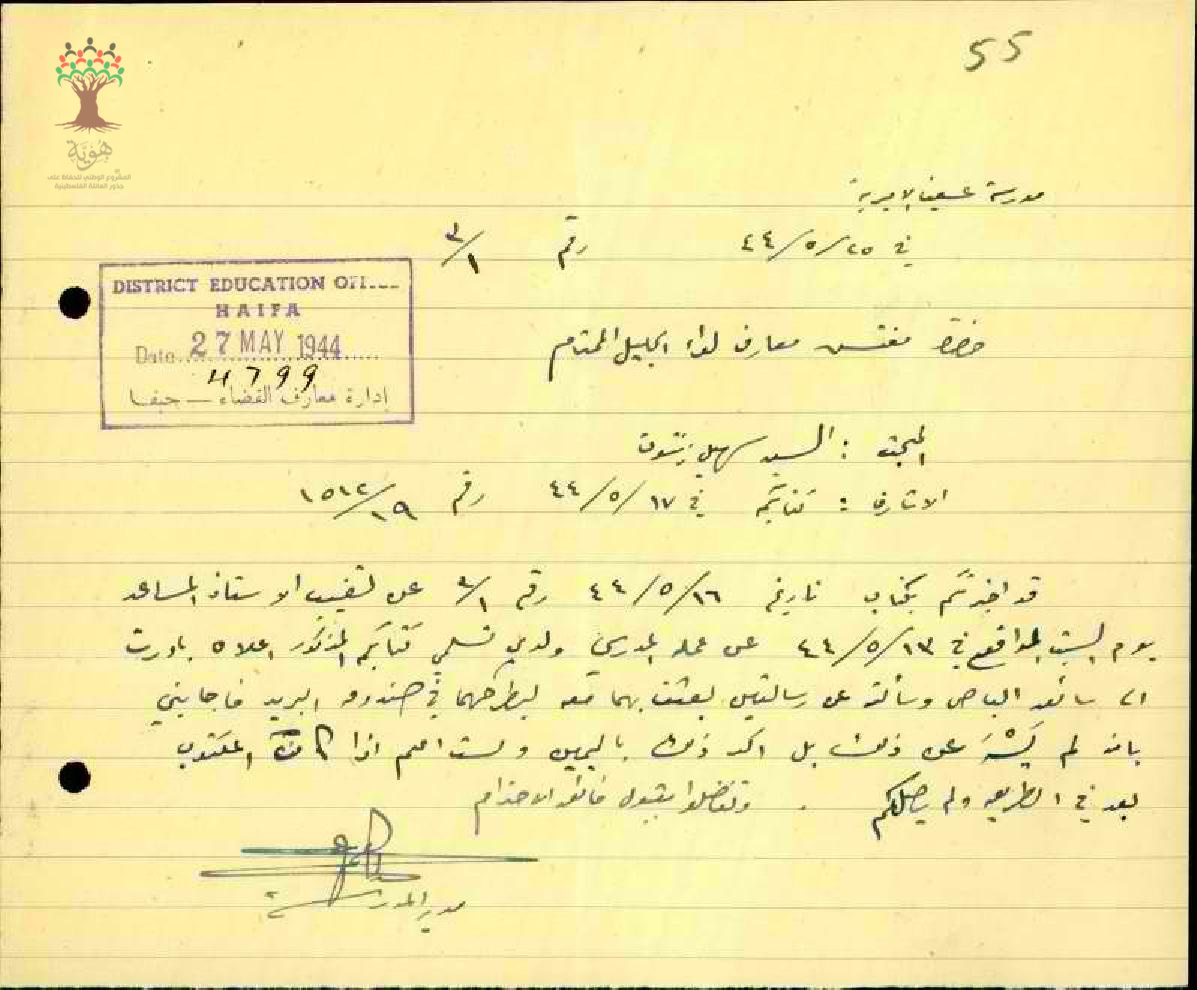 55
هوية
المشروع الوطني للحفاظ على
جذور العائلة الفلسطينية
مدرسة عسفيا الاميرية
في ٢٥/٥/٤٤ رقم ٣/١
DISTRICT EDUCATION OFFICE
HAIFA
Date 27 MAY 1944
4799
إدارة معارف القضاء — حيفا
حضرة مفتش معارف لواء الجليل المحترم
المبحث : السيد سهيل
الاشارة : كتابكم في ١٧/٥/٤٤ رقم ١٥١٢/١٩
قد اخبرتكم بكتاب تاريخ ١٦/٥/٤٤ رقم ٣/١ عن تغيب الاستاذ المساعد
يوم السبت الواقع في ١٣/٥/٤٤ عن عمله المدرسي ولدى تسلمي كتابكم المذكور اعلاه بادرت
الى سائق الباص وسألته عن رسالتين بعثت بهما معه ليطرحهما في صندوق البريد فاجابني
بانه لم يَسْهَ عن ذلك بل اكد ذلك باليمين ولست اعلم اذا كان المكتوب
بعد في الطريق ولم يصلكم . وتفضلوا بقبول فائق الاحترام
مدير المدرسة